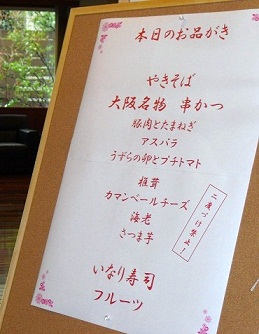 本日のお品がき
やきそば
大阪名物 串かつ
豚肉とたまねぎ
アスパラ
うずらの卵とプチトマト
椎茸
カマンベールチーズ
海老
さつま芋
二度づけ禁止!
いなり寿司
フルーツ